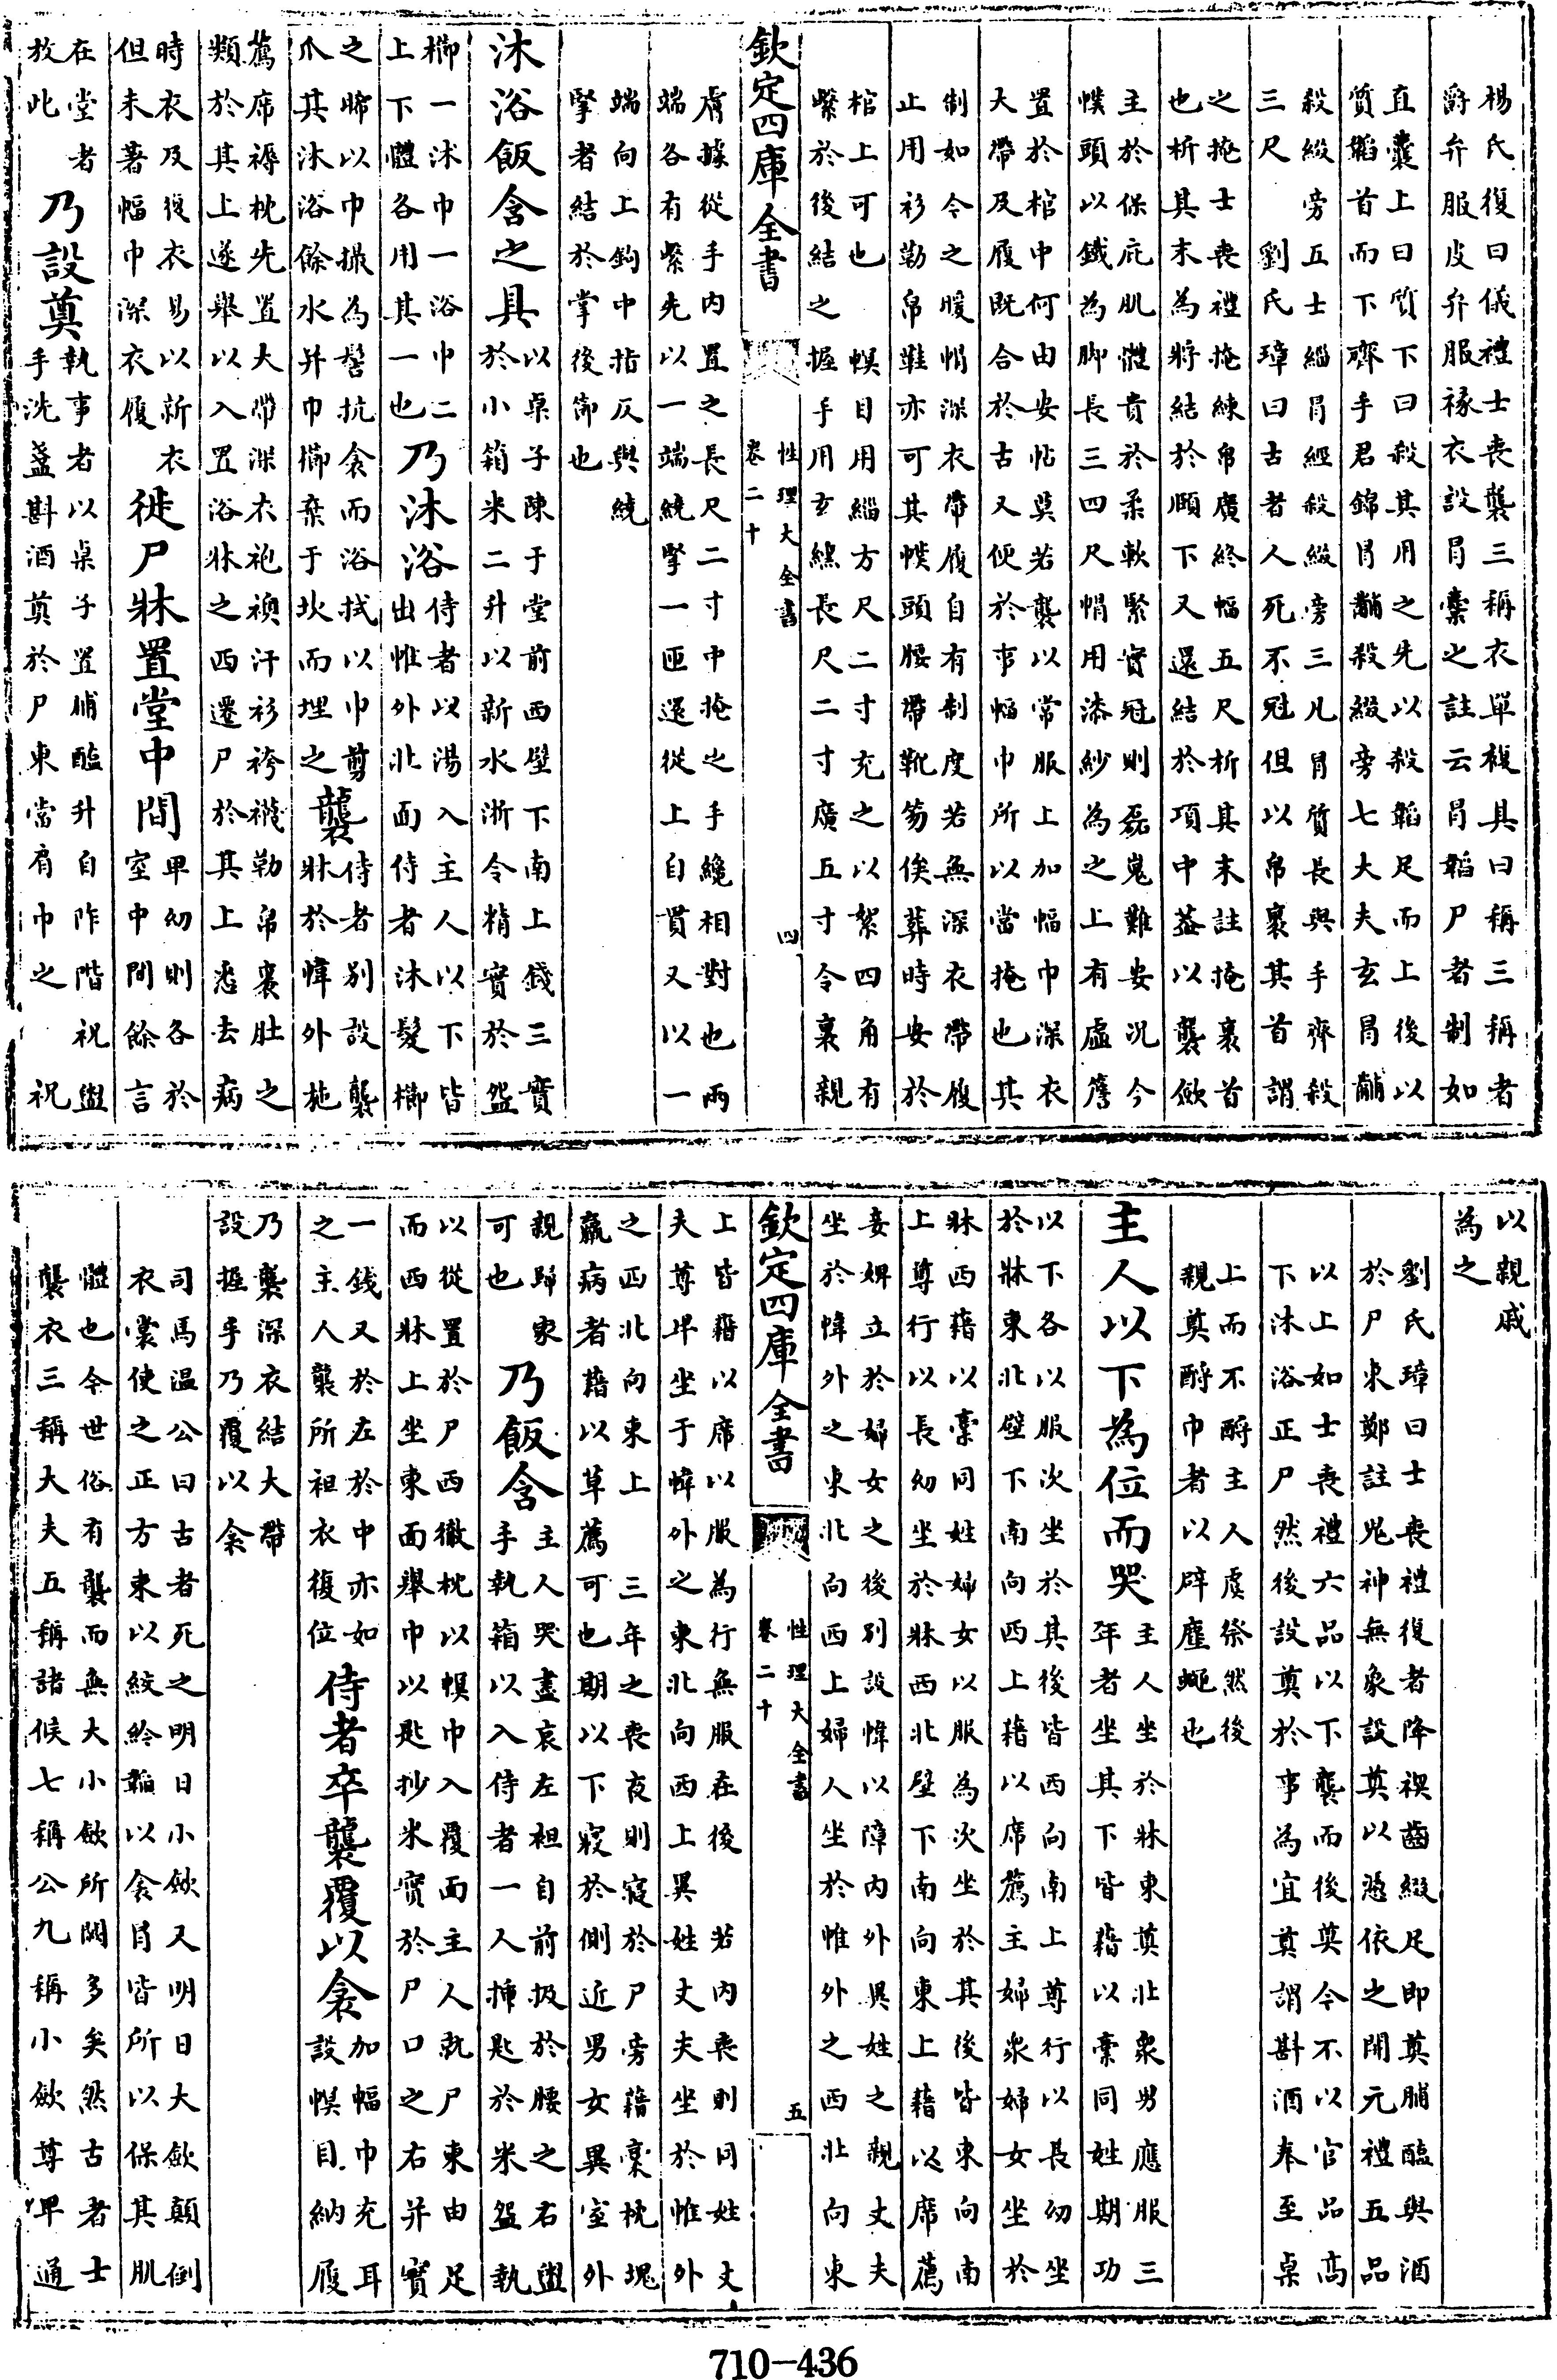 楊氏復曰儀禮士喪襲三稱衣單複具曰稱三稱者
爵弁服皮弁服褖衣設冒櫜之註云冒韜尸者制如
直囊上曰質下曰殺其用之先以殺韜足而上後以
質韜首而下齊手君錦冒黼殺綴旁七大夫玄冒黼
殺綴旁五士緇冒經殺綴旁三凡冒質長與手齊殺
三尺 劉氏璋曰古者人死不冠但以帛裹其首謂
之掩士喪禮掩練帛廣終幅五尺析其末註掩裹首
也析其末為將結於頤下又還結於項中蓋以襲斂
主於保庇肌體貴於柔軟緊實冠則磊嵬難安況今
幞頭以鐵為脚長三四尺帽用漆紗為之上有虛簷
置於棺中何由安帖莫若襲以常服上加幅巾深衣
大帶及履既合於古又便於事幅巾所以當掩也其
制如今之暖帽深衣帶履自有制度若無深衣帶履
止用衫勒帛鞋亦可其幞頭腰帶靴笏俟葬時安於
棺上可也 幎目用緇方尺二寸充之以絮四角有
繫於後結之 握手用玄纁長尺二寸廣五寸令裹親
欽定四庫全書
性理大全書
卷二十
四
膚據從手內置之長尺二寸中掩之手纔相對也兩
端各有繫先以一端繞掔一匝還從上自貫又以一
端向上鉤中指反與繞
掔者結於掌後節也
沐浴飯含之具
以桌子陳于堂前西壁下南上錢三實
於小箱米二升以新水淅令精實於盌
櫛一沐巾一浴巾二
上下體各用其一也
乃沐浴
侍者以湯入主人以下皆
出帷外北面侍者沐髮櫛
之晞以巾撮為髻抗衾而浴拭以巾剪
爪其沐浴餘水并巾櫛棄于坎而埋之
襲
侍者別設襲
牀於幃外施
薦席褥枕先置大帶深衣袍襖汗衫袴襪勒帛裹肚之
類於其上遂舉以入置浴牀之西遷尸於其上悉去病
時衣及復衣易以新衣
但未著幅巾深衣履
徙尸牀置堂中間
卑幼則各於
室中間餘言
在堂者
放此
乃設奠
執事者以桌子置脯醢升自阼階祝盥
手洗盞斟酒奠於尸東當肩巾之 祝
以親戚
為之
劉氏璋曰士喪禮復者降楔齒綴足即奠脯醢與酒
於尸東鄭註鬼神無象設奠以憑依之開元禮五品
以上如士喪禮六品以下襲而後奠今不以官品高
下沐浴正尸然後設奠於事為宜奠謂斟酒奉至桌
上而不酹主人虞祭然後
親奠酹巾者以辟塵蠅也
主人以下為位而哭
主人坐於牀東奠北衆男應服三
年者坐其下皆藉以槀同姓期功
以下各以服次坐於其後皆西向南上尊行以長幼坐
於牀東北壁下南向西上藉以席薦主婦衆婦女坐於
牀西藉以槀同姓婦女以服為次坐於其後皆東向南
上尊行以長幼坐於牀西北壁下南向東上藉以席薦
妾婢立於婦女之後別設幃以障內外異姓之親丈夫
坐於幃外之東北向西上婦人坐於帷外之西北向東
欽定四庫全書
性理大全書
卷二十
五
上皆藉以席以服為行無服在後 若內喪則同姓丈
夫尊卑坐于幃外之東北向西上異姓丈夫坐於帷外
之西北向東上 三年之喪夜則寢於尸旁藉槀枕塊
羸病者藉以草薦可也期以下寢於側近男女異室外
親歸家
可也
乃飯含
主人哭盡哀左袒自前扱於腰之右盥
手執箱以入侍者一人插匙於米盌執
以從置於尸西徹枕以幎巾入覆面主人就尸東由足
而西牀上坐東面舉巾以匙抄米實於尸口之右并實
一錢又於左於中亦如
之主人襲所袒衣復位
侍者卒襲覆以衾
加幅巾充耳
設幎目納履
乃襲深衣結大帶
設握手乃覆以衾
司馬溫公曰古者死之明日小斂又明日大斂顛倒
衣裳使之正方束以絞紟韜以衾冒皆所以保其肌
體也今世俗有襲而無大小斂所闕多矣然古者士
襲衣三稱大夫五稱諸侯七稱公九稱小斂尊卑通
710-436